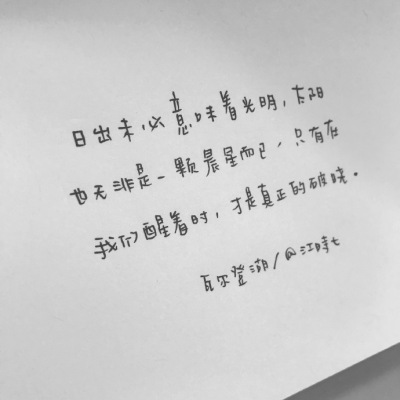 日出未必意味着光明，太阳
也无非是一颗晨星而已，只有在
我们醒着时，才是真正的破晓。
瓦尔登湖/@江時七